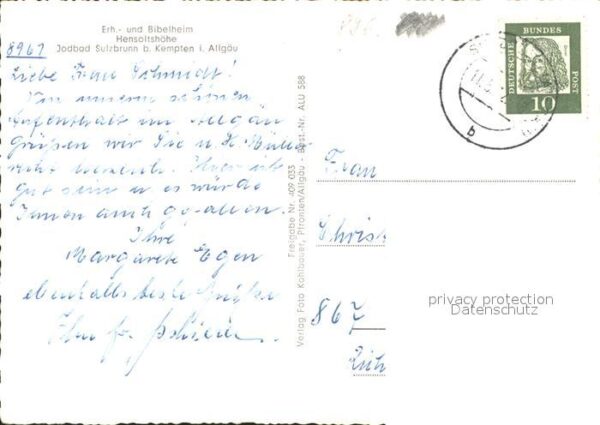 Erh.- und Bibelheim
Hensoltshöhe
8961 Jodbad Sulzbrunn b. Kempten i. Allgäu
Liebe Frau Schmidt!
Von unserm schönen
Aufenthalt im Allgäu
grüßen wir Sie u. H. Müller
recht herzlich. Hier ist
gut sein u es würde
Ihnen auch gefallen.
Ihre
Margarete Egen
ebenfalls beste Grüße
Ihre fr.
Freigabe Nr. 409 033
Verlag Foto Kohlbauer, Pfronten/Allgäu - Best.-Nr. ALU 588
896
DEUTSCHE BUNDES POST
10
b
Frau
Christ
867
privacy protection
Datenschutz